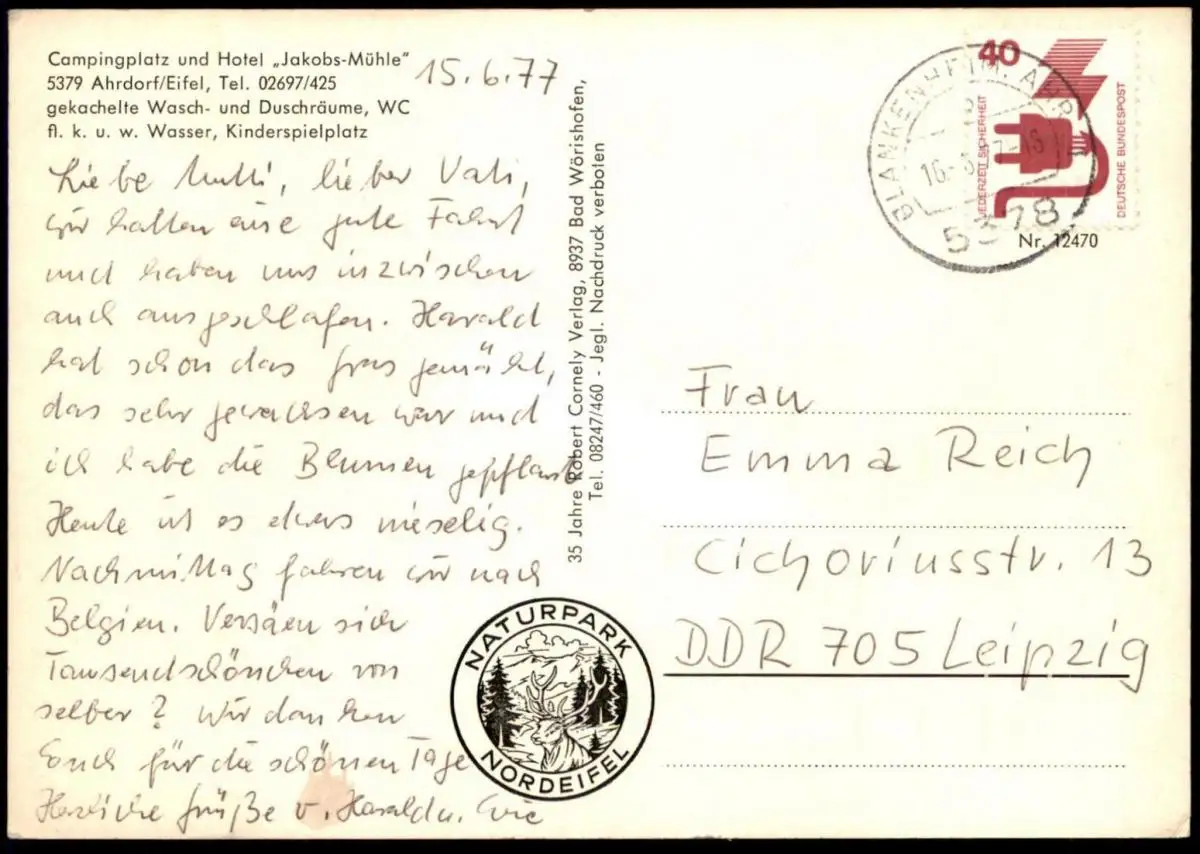 Campingplatz und Hotel „Jakobs-Mühle"
5379 Ahrdorf/Eifel, Tel. 02697/425
gekachelte Wasch- und Duschräume, WC
fl. k. u. w. Wasser, Kinderspielplatz
15.6.77
Liebe Mutti, lieber Vati,
wir hatten eine gute Fahrt
und haben uns inzwischen
auch ausgeschlafen. Harald
hat schon das Gras gemäht,
das sehr gewachsen war und
ich habe die Blumen gepflanzt
Heute ist es etwas nieselig.
Nachmittag fahren wir nach
Belgien. Versäen sich
Tausendschönchen von
selber? Wir danken
Euch für die schönen Tage
Herzliche Grüße v. Harald u. Evie
35 Jahre Robert Cornely Verlag, 8937 Bad Wörishofen,
Tel. 08247/460 - Jegl. Nachdruck verboten
NATURPARK
NORDEIFEL
40
JEDERZEIT SICHERHEIT
DEUTSCHE BUNDESPOST
BLANKENHEIM, AHR
5378
Nr. 12470
Frau
Emma Reich
Cichoriusstr. 13
DDR 705 Leipzig